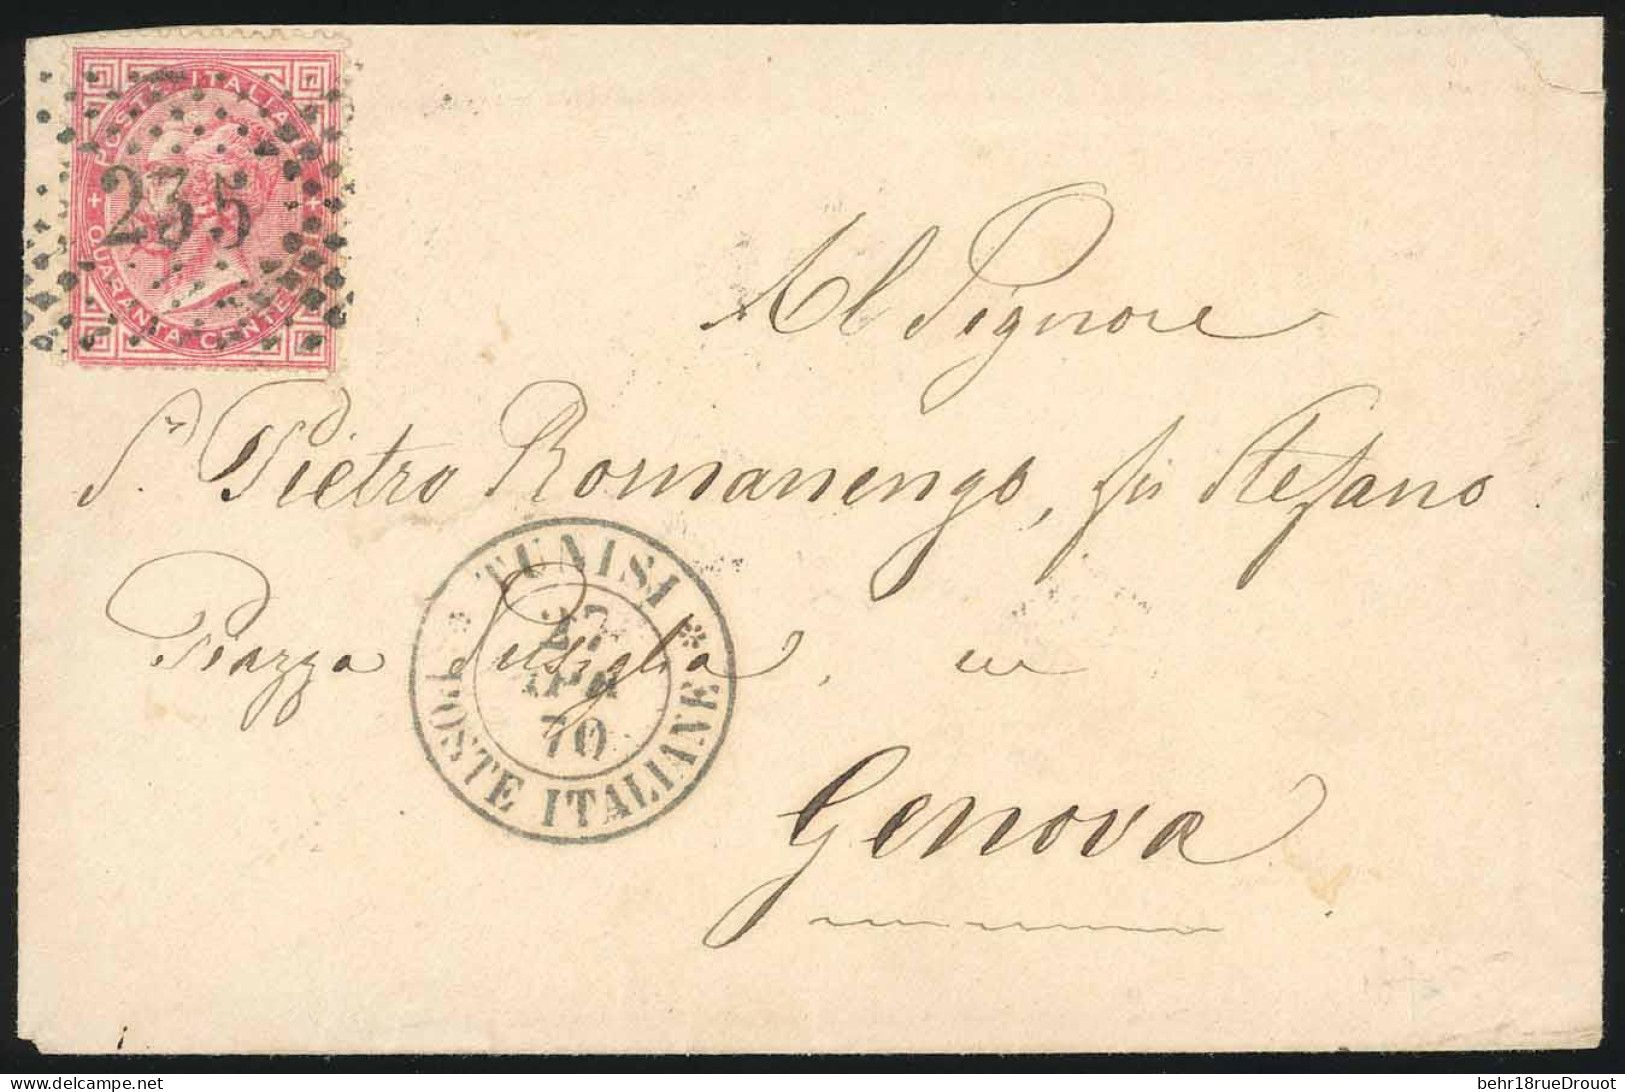 POSTE ITALIANE
235
+ QUARANTA CENTESIMI +
Al Signore
Sr. Pietro Romanengo, fu Stefano
Piazza Pusiglia, in
Genova
* TUNISI *
27
APR
70
POSTE ITALIANE
behr18rueDrouot